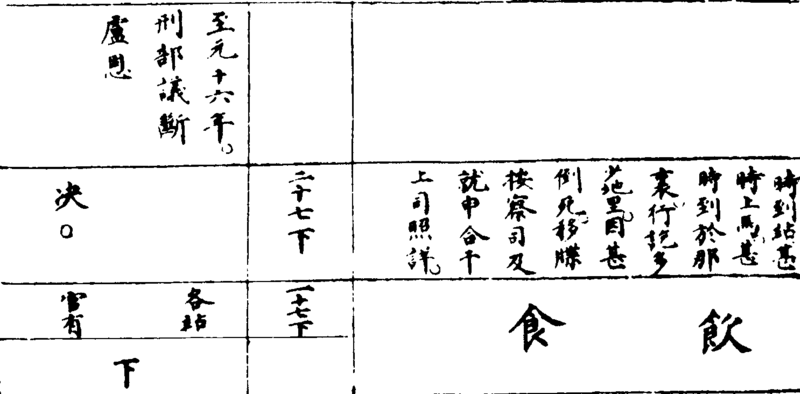 時到站甚
時上馬甚
時到於那
裏行説多
少地里因甚
倒死移牒
按察司及
就申合干
上司照詳
飲
食
二十七下
一十七下
至元十六年
刑部議斷
盧恩
决
各站
官有
下